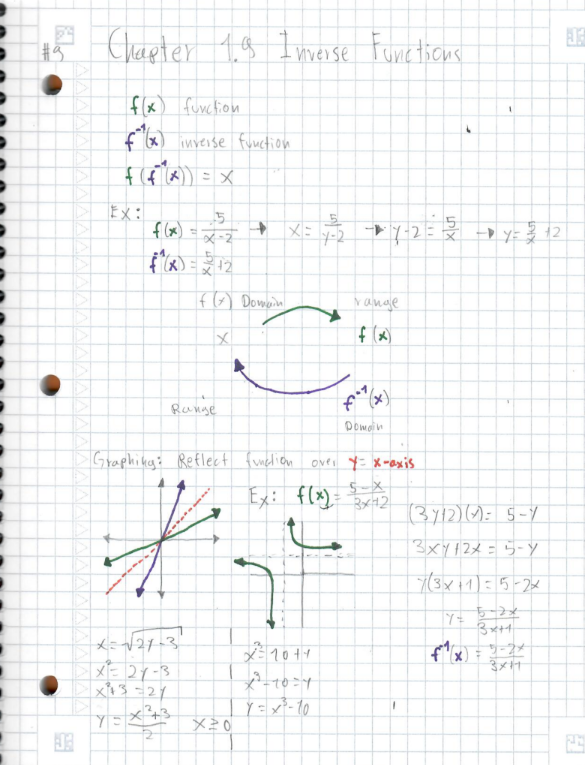 #9 Chapter 1.9 Inverse Functions
f(x) function
f⁻¹(x) inverse function
f(f⁻¹(x)) = x
Ex:
f(x) = 5/(x-2) → x = 5/(y-2) → y-2 = 5/x → y = 5/x + 2
f⁻¹(x) = 5/x + 2
f(x) Domain range
x f(x)
f⁻¹(x)
Range
Domain
Graphing: Reflect function over y = x-axis
Ex: f(x) = (5-x)/(3x+2)
(3y+2)(x) = 5-y
3xy+2x = 5-y
y(3x+1) = 5-2x
y = (5-2x)/(3x+1)
f⁻¹(x) = (5-2x)/(3x+1)
x = √(2y-3)
x² = 2y-3
x²+3 = 2y
y = (x²+3)/2 x ≥ 0
x³ = 10+y
x³-10 = y
y = x³-10